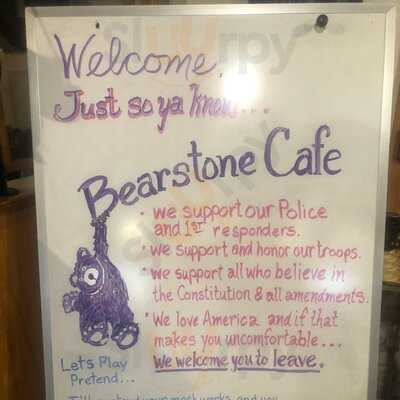 Welcome,
Just so ya know...
Bearstone Cafe
• We support our Police
and 1ST responders.
• We support and honor our troops.
• We support all who believe in
the Constitution & all amendments.
• We love America and if that
makes you uncomfortable...
We welcome you to leave.
Let's Play
Pretend...